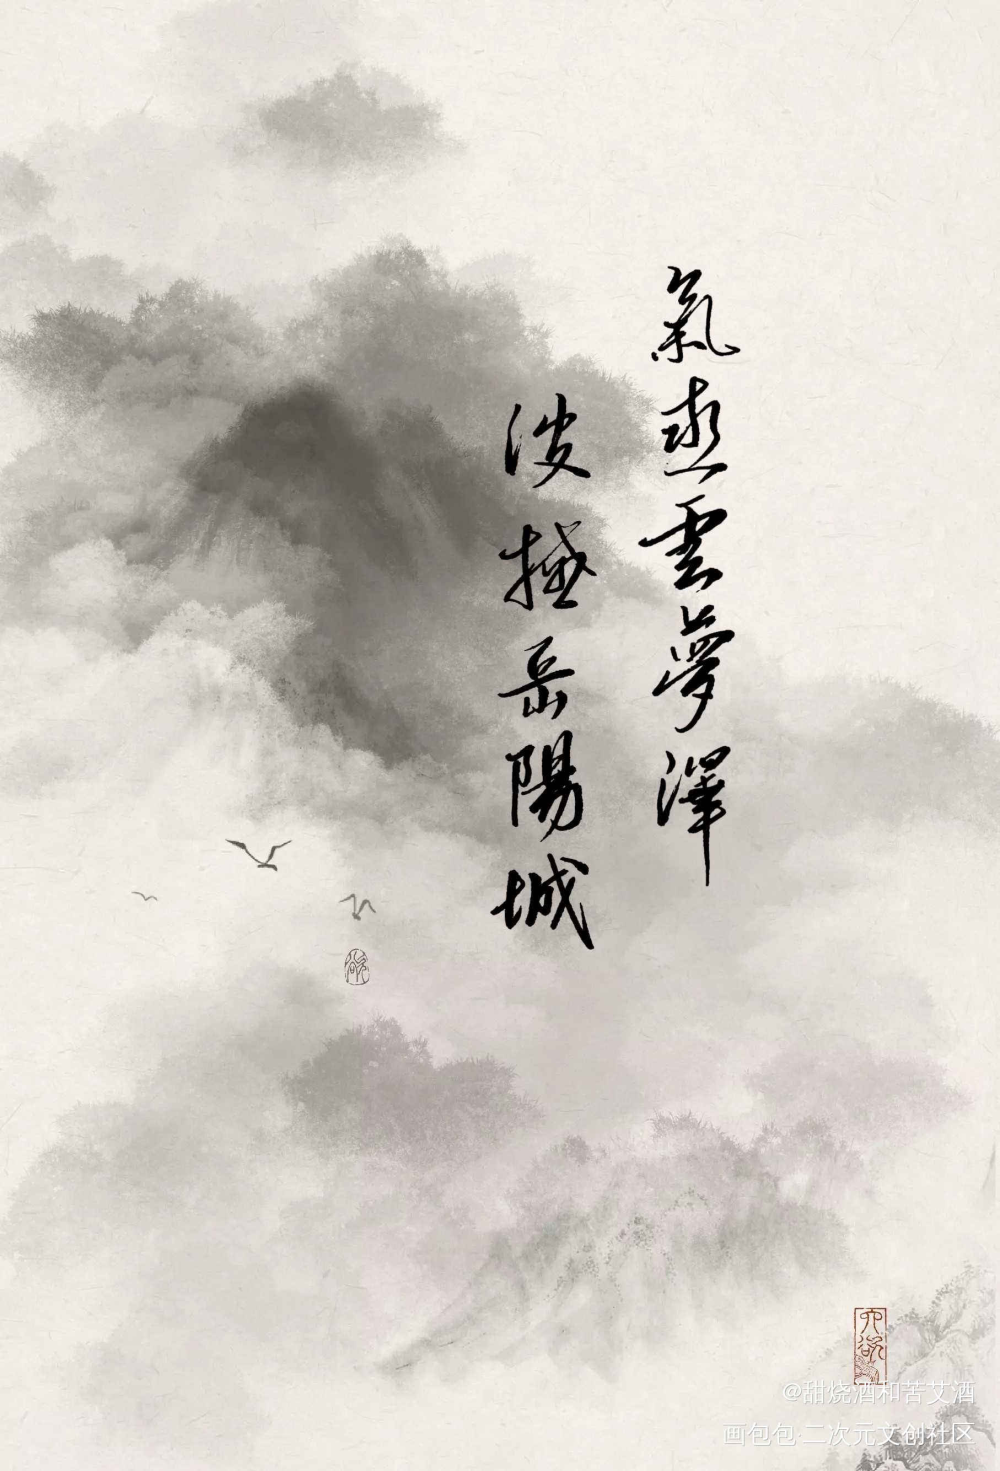 氣蒸雲夢澤
波撼岳陽城
@甜烧酒和苦艾酒
画包包·二次元文创社区